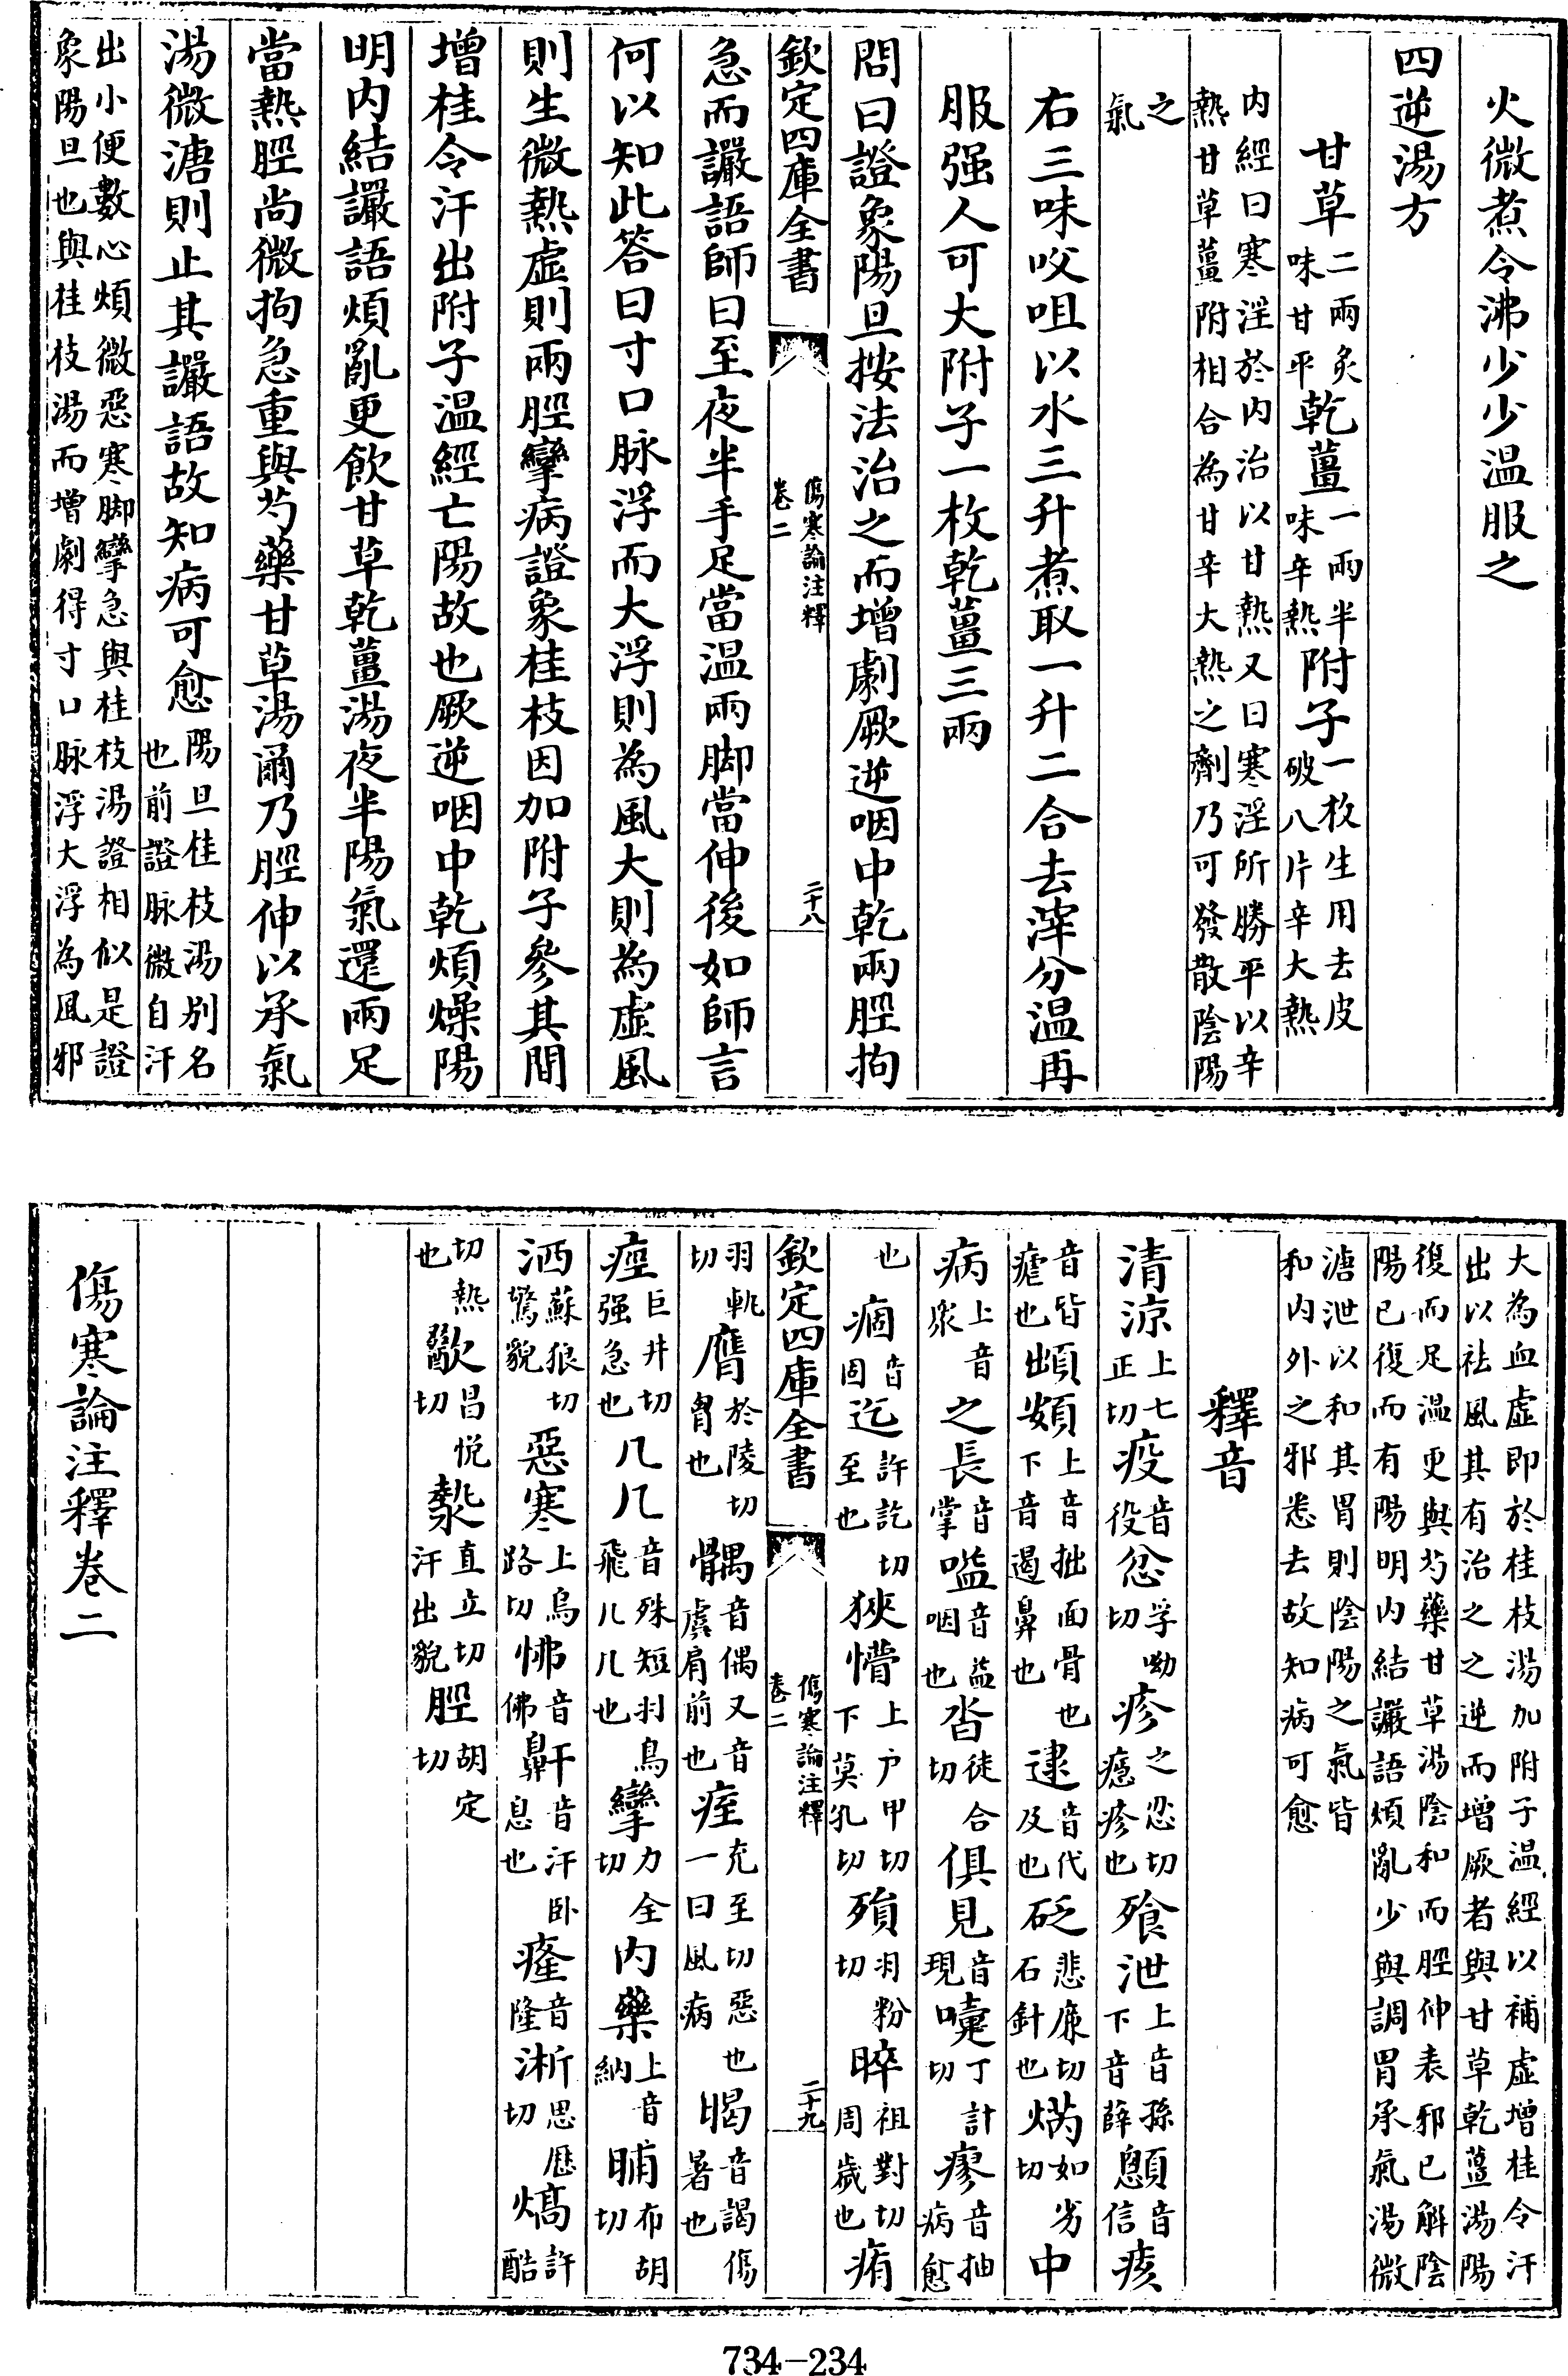 火微煮令沸少少温服之
四逆湯方
甘草二兩炙味甘平乾薑一兩半味辛熱附子一枚生用去皮破八片辛大熱
内經曰寒淫於内治以甘熱又曰寒淫所勝平以辛
熱甘草薑附相合為甘辛大熱之劑乃可發散陰陽
之
氣
右三味咬咀以水三升煮取一升二合去滓分温再
服强人可大附子一枚乾薑三兩
問曰證象陽旦按法治之而增劇厥逆咽中乾兩脛拘
欽定四庫全書
傷寒論注釋
卷二
二十八
急而讝語師曰至夜半手足當温兩脚當伸後如師言
何以知此答曰寸口脉浮而大浮則為風大則為虛風
則生微熱虛則兩脛攣病證象桂枝因加附子參其間
增桂令汗出附子温經亡陽故也厥逆咽中乾煩燥陽
明内結讝語煩亂更飲甘草乾薑湯夜半陽氣還兩足
當熱脛尚微拘急重與芍藥甘草湯爾乃脛伸以承氣
湯微溏則止其讝語故知病可愈陽旦桂枝湯别名也前證脉微自汗
出小便數心煩微惡寒脚攣急與桂枝湯證相似是證
象陽旦也與桂枝湯而增劇得寸口脉浮大浮為風邪
大為血虛即於桂枝湯加附子温經以補虛增桂令汗
出以祛風其有治之之逆而增厥者與甘草乾薑湯陽
復而足温更與芍藥甘草湯陰和而脛伸表邪已解陰
陽已復而有陽明内結讝語煩亂少與調胃承氣湯微
溏泄以和其胃則陰陽之氣皆
和内外之邪悉去故知病可愈
釋音
清涼上七正切疫音役忿孚吻切疹之忍切癮疹也飱泄上音孫下音薛顖音信痎
音皆瘧也䪼頞上音拙面骨也下音遏鼻也逮音代及也砭悲廉切石針也焫如劣切中
病上音衆之長音掌嗌音益咽也沓徒合切俱見音現嚏丁計切瘳音抽病愈
也痼音固迄許訖切至也狹懵上户甲切下莫孔切殞羽粉切晬祖對切周歲也痏
欽定四庫全書
傷寒論注釋
卷二
二十九
羽軌切膺於陵切胷也髃音偶又音虞肩前也痓充至切惡也一曰風病暍音謁傷暑也
痙巨井切强急也几几音殊短羽鳥飛几几也攣力全切内藥上音納晡布胡切
洒蘇狠切驚貌惡寒上烏路切怫音佛鼾音汗卧息也癃音隆淅思歷切熇許酷
切熱也歠昌悦切漐直立切汗出貌脛胡定切
傷寒論注釋卷二
734-234